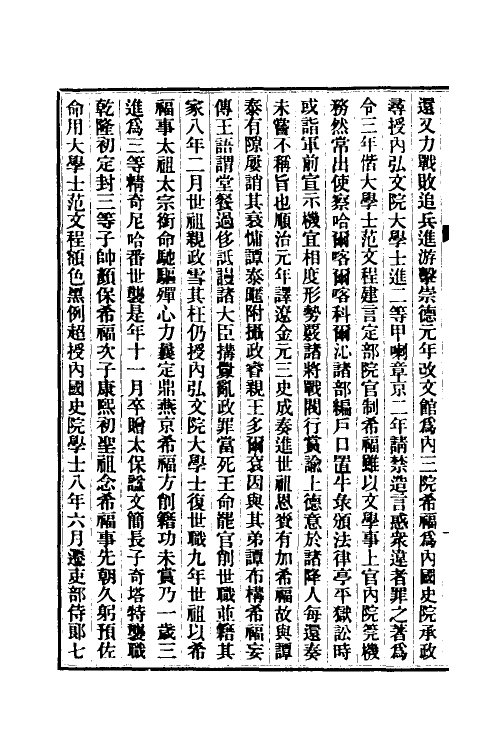 還又力戰敗追兵進游擊崇德元年改文館爲內三院希福爲內國史院承政
尋授內弘文院大學士進二等甲喇章京二年請禁造言惑衆違者罪之著爲
令三年偕大學士范文程建言定部院官制希福雖以文學事上官內院筦機
務然常出使察哈爾喀爾喀科爾沁諸部編戶口置牛彔頒法律亭平獄訟時
或詣軍前宣示機宜相度形勢覈諸將戰閥行賞諭上德意於諸降人每還奏
未嘗不稱旨也順治元年譯遼金元三史成奏進世祖恩賚有加希福故與譚
泰有隙屢誚其衰慵譚泰暱附攝政睿親王多爾袞因與其弟譚布構希福妄
傳王語謂堂餐過侈詆謾諸大臣搆釁亂政罪當死王命罷官削世職並籍其
家八年二月世祖親政雪其枉仍授內弘文院大學士復世職九年世祖以希
福事太祖太宗銜命馳驅殫心力曩定鼎燕京希福方削籍功未賞乃一歲三
進爲三等精奇尼哈番世襲是年十一月卒贈太保諡文簡長子奇塔特襲職
乾隆初定封三等子帥顏保希福次子康熙初聖祖念希福事先朝久躬預佐
命用大學士范文程額色黑例超授內國史院學士八年六月遷吏部侍郞七